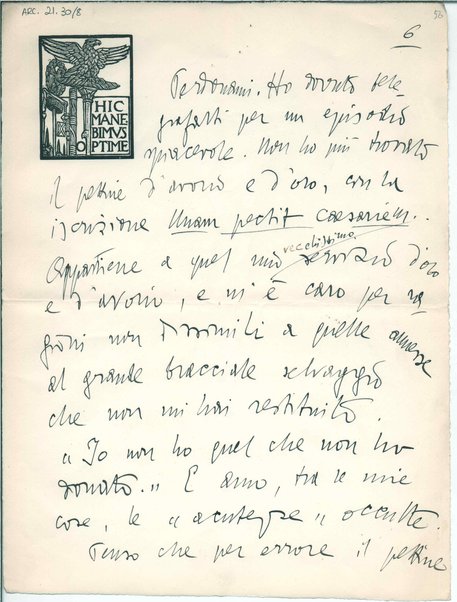 ARC. 21. 30/8
56
6
HIC
MANE
BIMVS
OPTIME
Perdonami. Ho dovuto tele-
grafarti per un episodio
spiacevole. Non ho più trovato
il pettine d'avorio e d'oro, con la
iscrizione Unam pectit caesariem.
Appartiene a quel mio vecchissimo servizio d'oro
e d'avorio, e m'è caro per ra-
gioni non dissimili a quelle annesse
al grande bracciale selvaggio
che non mi hai restituito.
"Io non ho quel che non ho
donato." E amo, tra le mie
cose, le "acutezze" occulte.
Penso che per errore il pettine